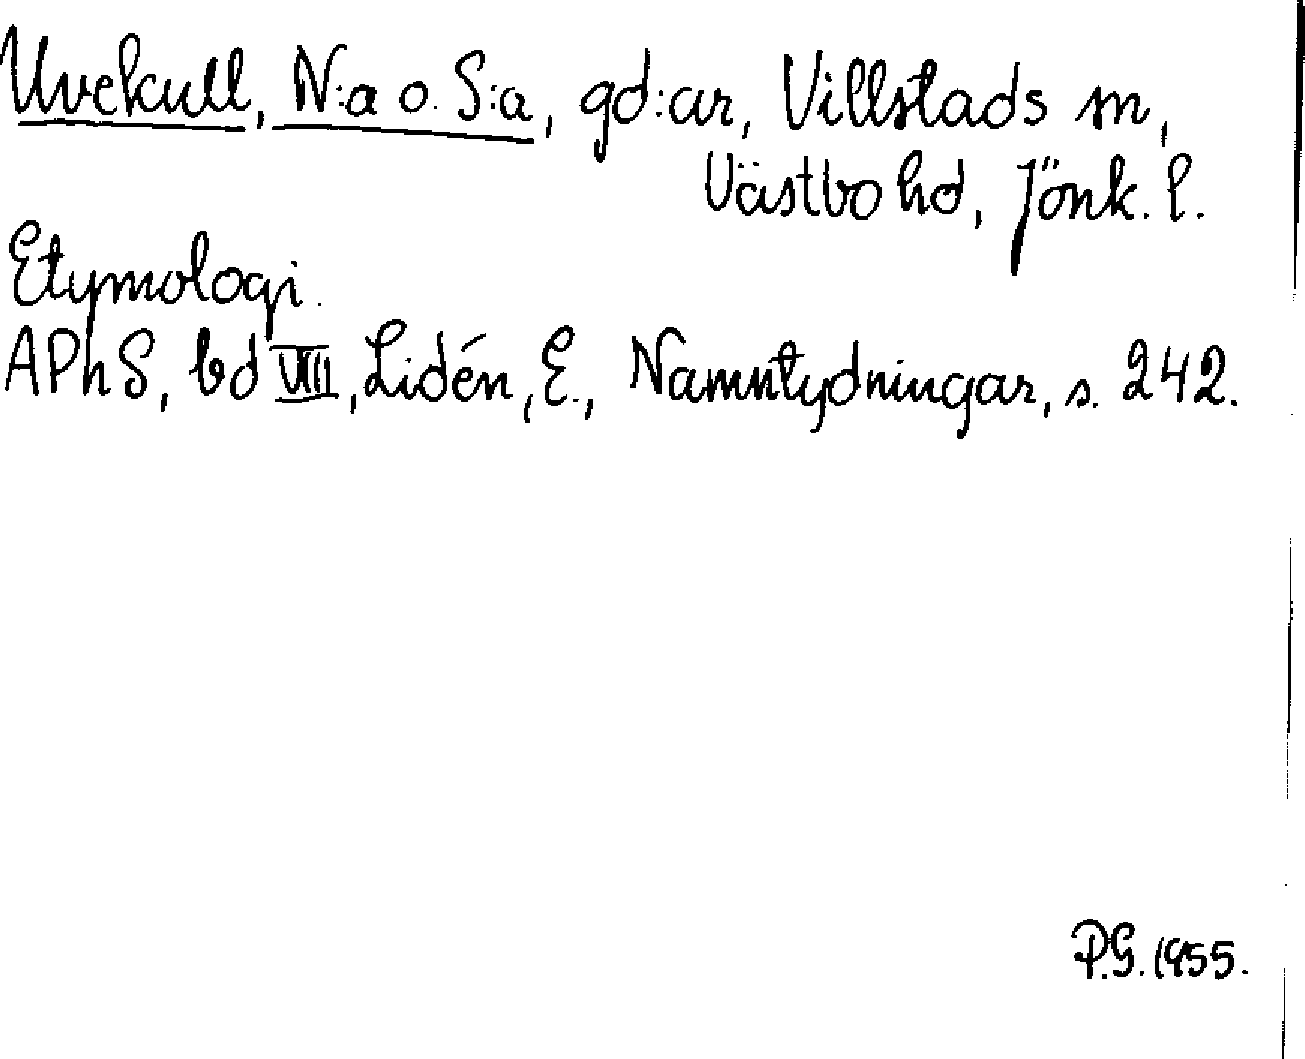 Uvekull, N:a o. S:a, gd:ar, Villstads sn,
Västbo hd, Jönk. l.
Etymologi.
APhS, bd VIII, Lidén, E., Namntydningar, s. 242.
P.G. 1955.